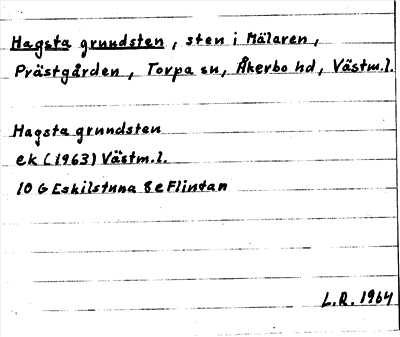 Hagsta grundsten, sten i Mälaren,
Prästgården, Torpa sn, Åkerbo hd, Västm.l.
Hagsta grundsten
ek (1963) Västm.l.
10 G Eskilstuna 8e Flintan
L.R. 1964